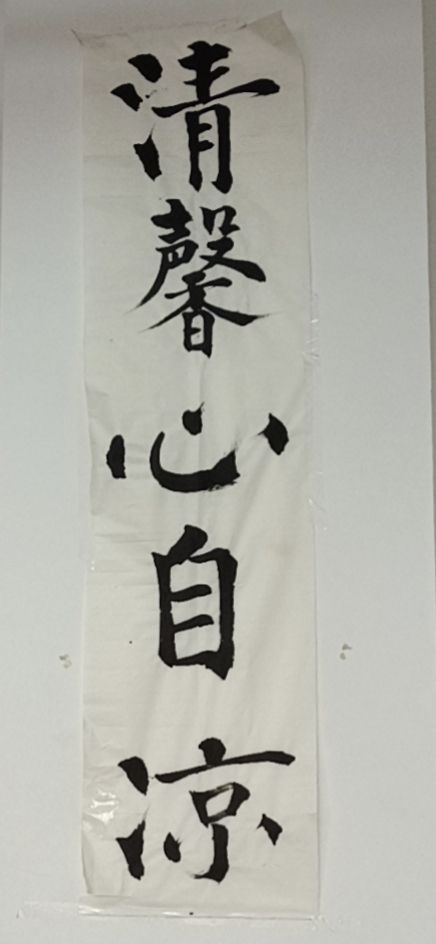 清馨心自凉